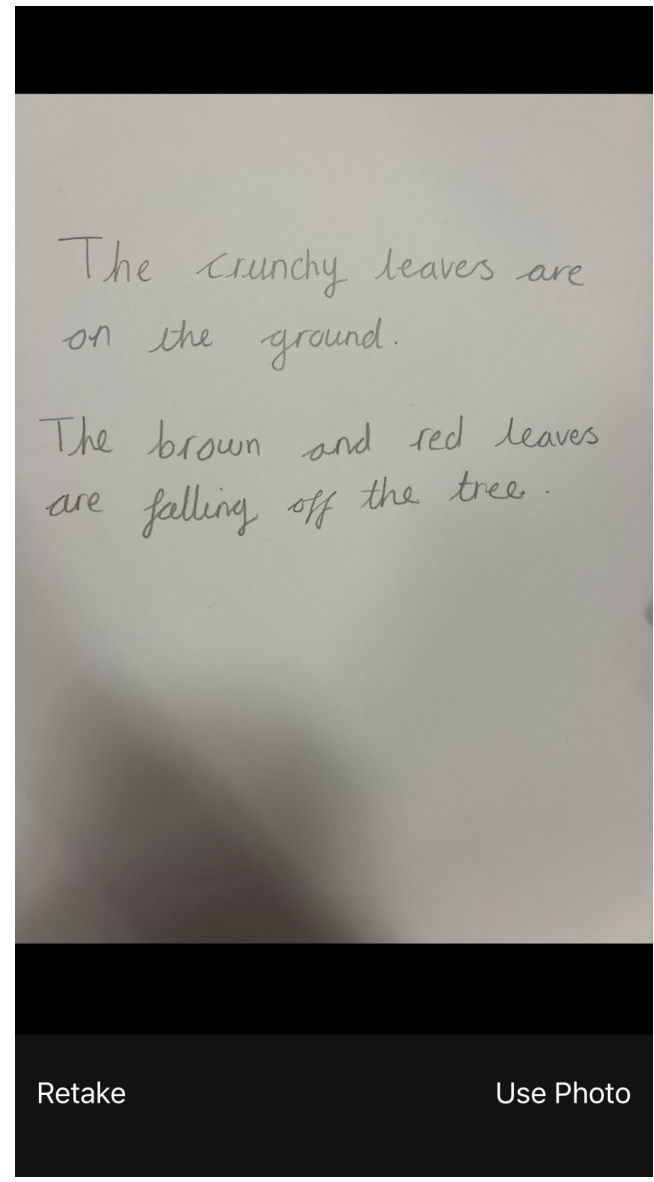 The crunchy leaves are
on the ground.
The brown and red leaves
are falling off the tree.
Retake
Use Photo